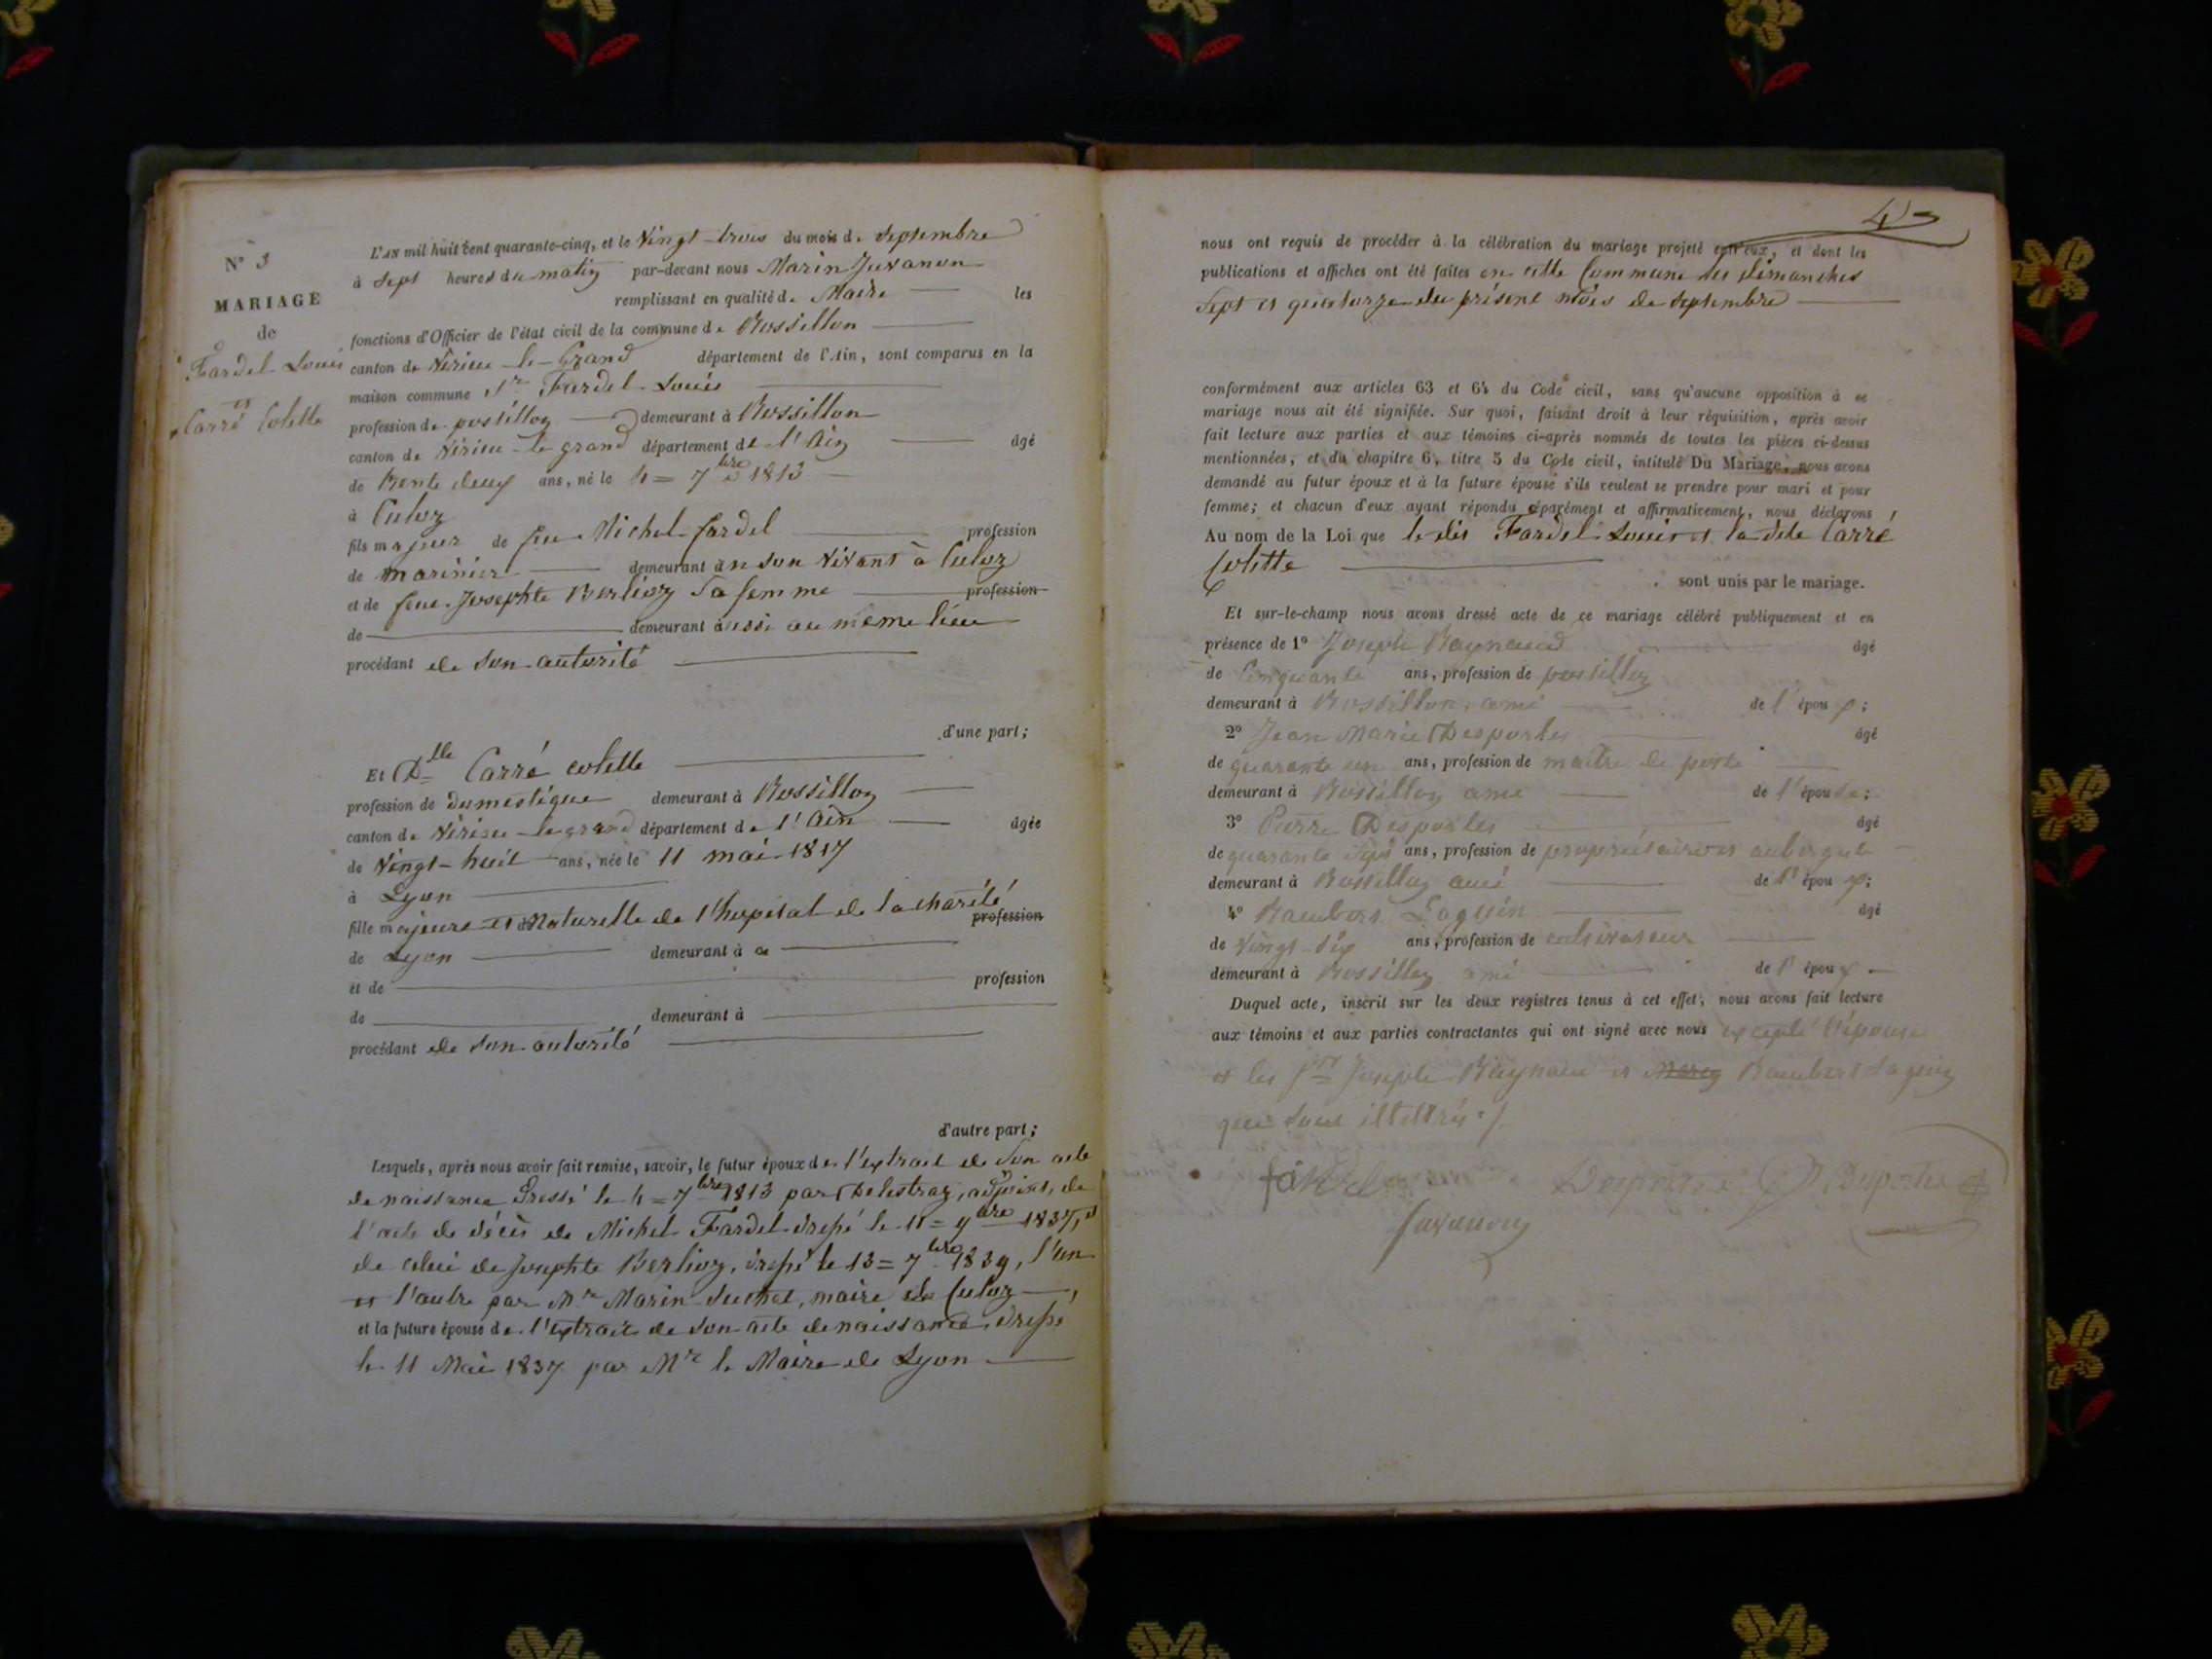 N° 3
MARIAGE
de
Fardel Louis
et
Carré Colette
L'AN mil huit cent quarante-cinq, et le Vingt-trois du mois de Septembre
à Sept heures du matin par-devant nous Marin Juvanon
remplissant en qualité de Maire les
fonctions d'Officier de l'état civil de la commune de Rossillon
canton de Virieu-le-Grand département de l'Ain, sont comparus en la
maison commune Sr Fardel Louis
profession de postillon demeurant à Rossillon
canton de Virieu-le grand département de l'Ain âgé
de trente deux ans, né le 4 = 7bre 1813
à Culoz
fils majeur de feu Michel fardel profession
de marinier demeurant en son vivant à Culoz
et de feue Josephte Berlioz Sa femme profession
de demeurant aussi au même lieu
procédant de Son autorité
d'une part;
Et Dlle Carré colette
profession de domestique demeurant à Rossillon
canton de Virieu-le grand département de l'Ain âgée
de Vingt-huit ans, née le 11 mai 1817
à Lyon
fille majeure et Naturelle de l'hopital de la charité profession
de Lyon demeurant à
et de profession
de demeurant à
procédant de Son autorité
d'autre part;
Lesquels, après nous avoir fait remise, savoir, le futur époux de l'extrait de Son acte
de naissance dressé le 4 = 7bre 1813 par Delestraz, adjoint, de
l'acte de décès de Michel Fardel dressé le 11 = 9bre 1837, et
de celui de Josephte Berlioz, dressé le 13 = 7bre 1839, l'un
et l'autre par Mr Marin Suchet, maire de Culoz,
et la future épouse de l'extrait de Son acte de naissance, dressé
le 11 Mai 1837 par Mr le Maire de Lyon
43
nous ont requis de procéder à la célébration du mariage projeté entr'eux, et dont les
publications et affiches ont été faites en cette Commune les dimanches
Sept et quatorze du présent mois de Septembre
conformément aux articles 63 et 64 du Code civil, sans qu'aucune opposition à ce
mariage nous ait été signifiée. Sur quoi, faisant droit à leur réquisition, après avoir
fait lecture aux parties et aux témoins ci-après nommés de toutes les pièces ci-dessus
mentionnées, et du chapitre 6, titre 5 du Code civil, intitulé Du Mariage, nous avons
demandé au futur époux et à la future épouse s'ils veulent se prendre pour mari et pour
femme; et chacun d'eux ayant répondu séparément et affirmativement, nous déclarons
Au nom de la Loi que le dit Fardel Louis et la dite Carré
Colette
sont unis par le mariage.
Et sur-le-champ nous avons dressé acte de ce mariage célébré publiquement et en
présence de 1° Joseph Raynaud âgé
de Cinquante ans, profession de postillon
demeurant à Rossillon, ami de l'époux;
2° Jean Marie Desportes âgé
de quarante un ans, profession de maître de poste
demeurant à Rossillon ami de l'épouse;
3° Pierre Desportes âgé
de quarante Sept ans, profession de propriétaire et aubergiste
demeurant à Rossillon ami de l'époux;
4° Rambert Laguin âgé
de Vingt-Six ans, profession de cultivateur
demeurant à Rossillon ami de l'époux
Duquel acte, inscrit sur les deux registres tenus à cet effet, nous avons fait lecture
aux témoins et aux parties contractantes qui ont signé avec nous excepté l'épouse
et les Srs Joseph Raynaud et Rambert Laguin
qui Sont illettrés
fardel Desportes Desportes
Juvanon